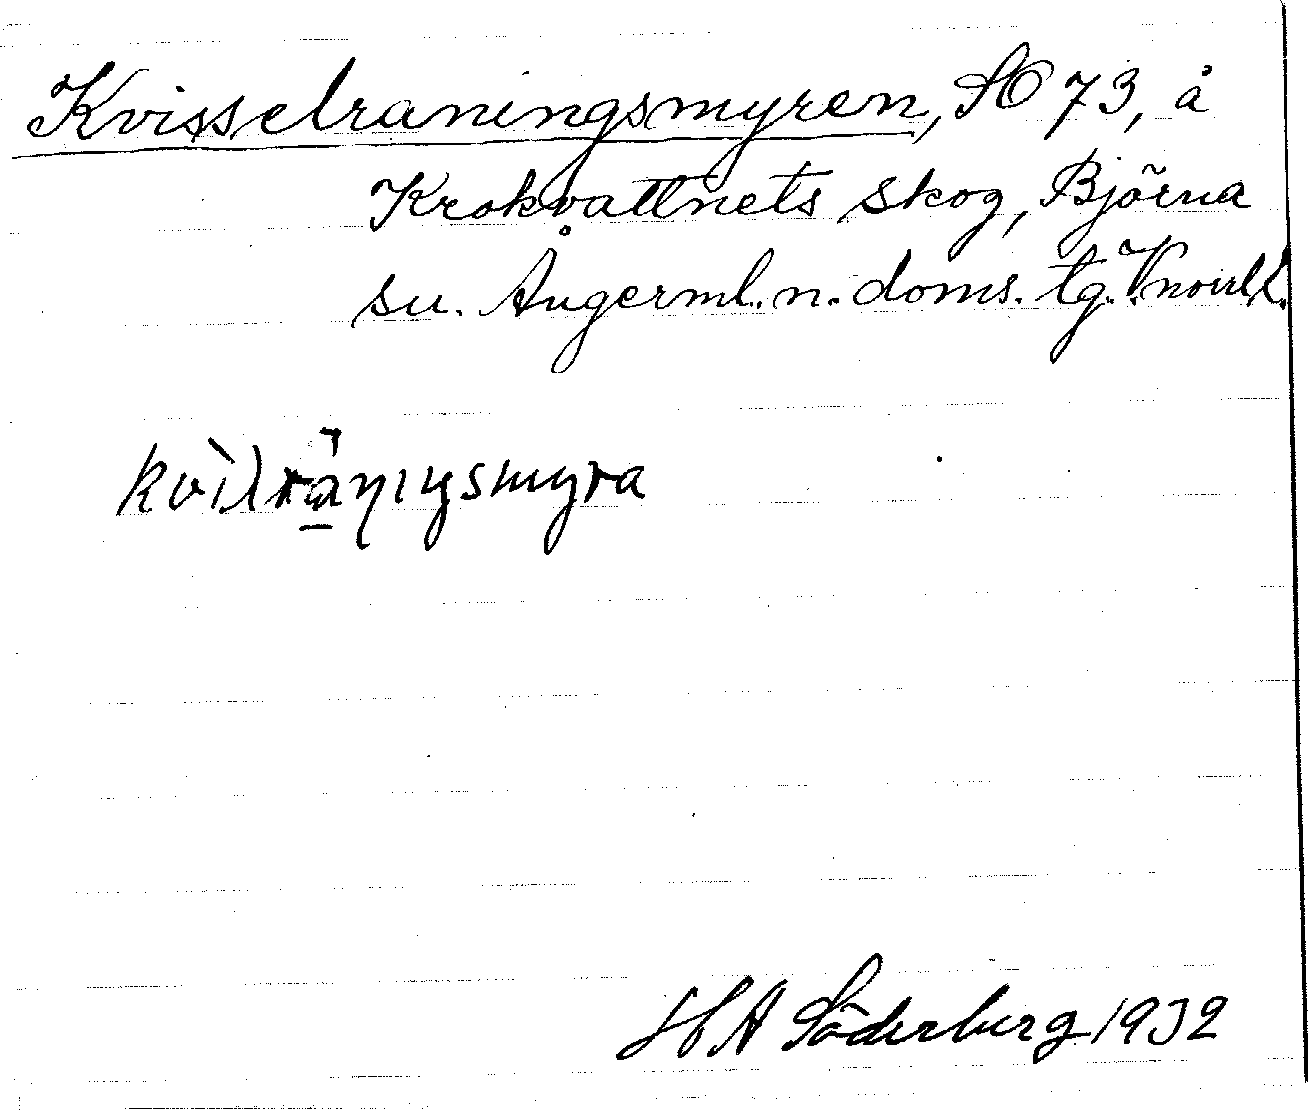 Kvisselraningsmyren, SO 73, å
Krokvattnets skog, Björna
sn. Ångerml. n. doms. tg. V.norrl. l.
HA Söderberg 1932